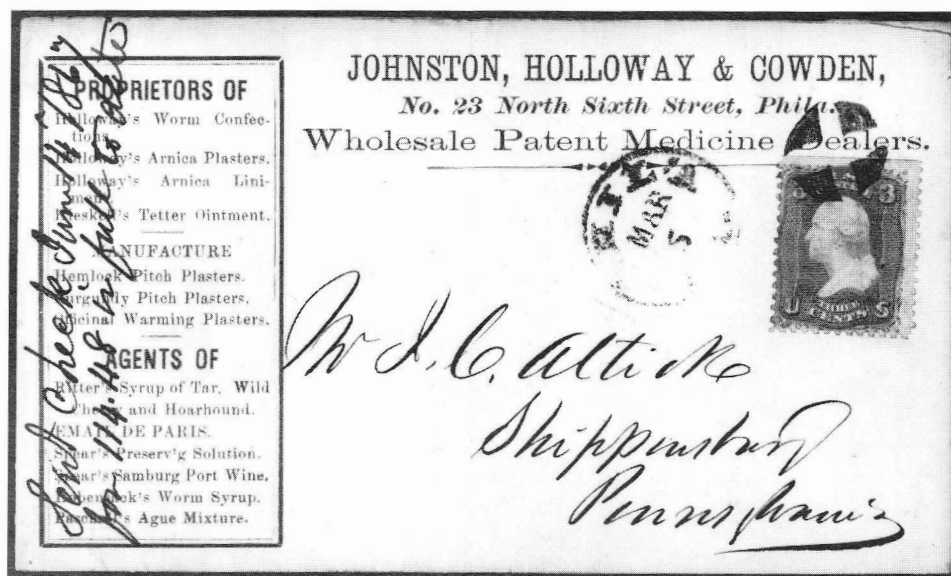 JOHNSTON, HOLLOWAY & COWDEN,
No. 23 North Sixth Street, Phila.
Wholesale Patent Medicine Dealers.
PROPRIETORS OF
Holloway's Worm Confec-
tions.
Holloway's Arnica Plasters.
Holloway's Arnica Lini-
ment.
Heiskell's Tetter Ointment.
MANUFACTURE
Hemlock Pitch Plasters.
Burgundy Pitch Plasters.
Officinal Warming Plasters.
AGENTS OF
Ritter's Syrup of Tar, Wild
Cherry and Hoarhound.
EMAIL DE PARIS.
Spear's Preserv'g Solution.
Spear's Samburg Port Wine.
Worm Syrup.
Ague Mixture.
Send Check
for 114.48 in full to date
PHILA
MAR
5
3 3
U S
CENTS
Mr J. C. Altick
Shippensburg
Pennsylvania